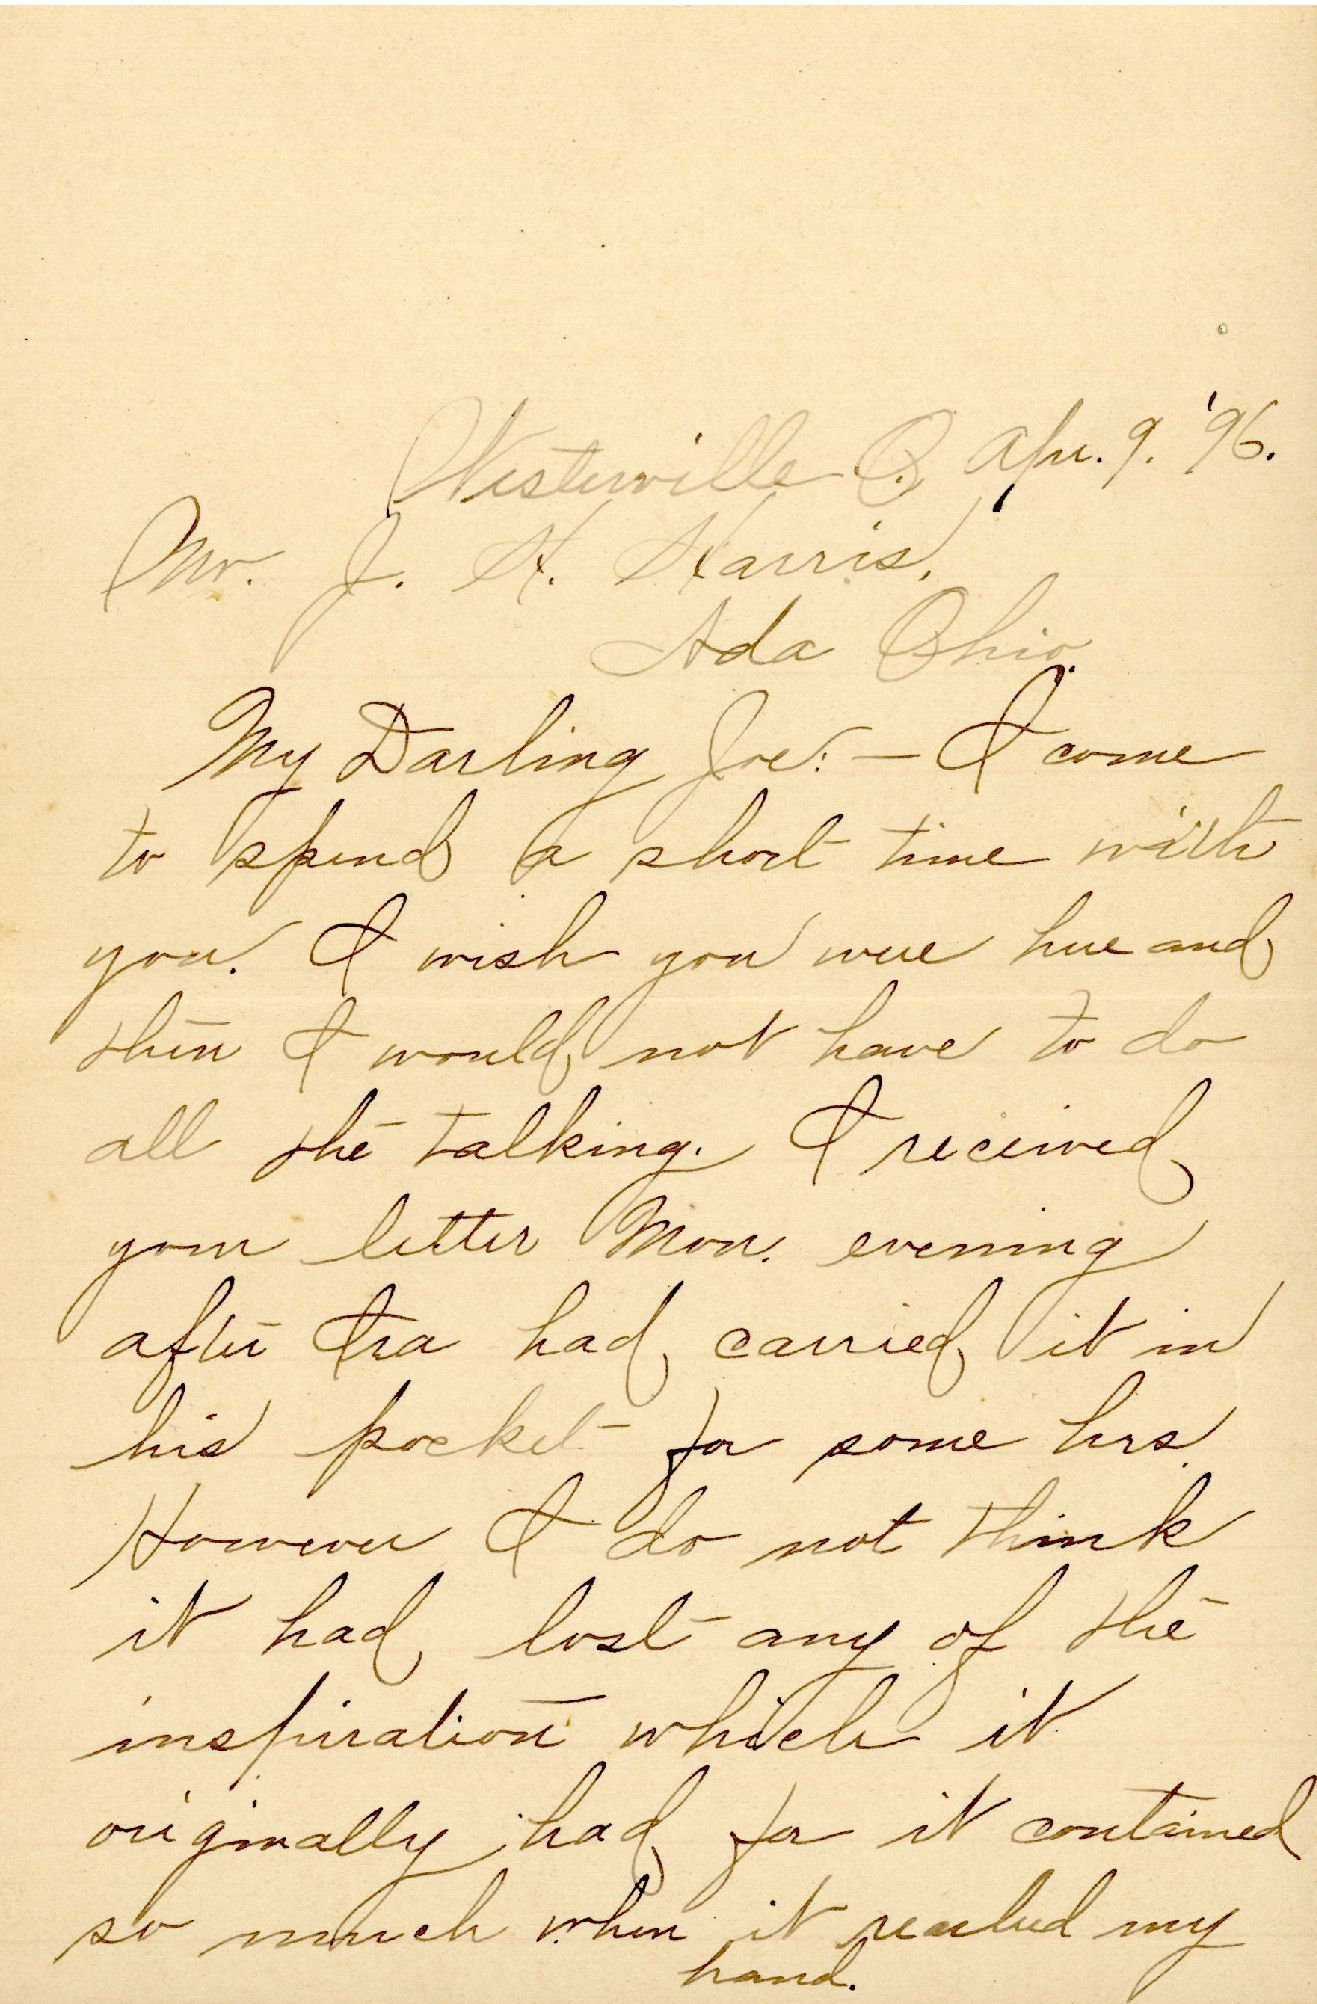 Westerville O. Apr. 9. '96.
Mr. J. H. Harris,
Ada Ohio.
My Darling Joe: — I come
to spend a short time with
you. I wish you were here and
then I would not have to do
all the talking. I received
your letter Mon. evening
after Ira had carried it in
his pocket for some hrs.
However I do not think
it had lost any of the
inspiration which it
originally had for it contained
so much when it reached my
hand.